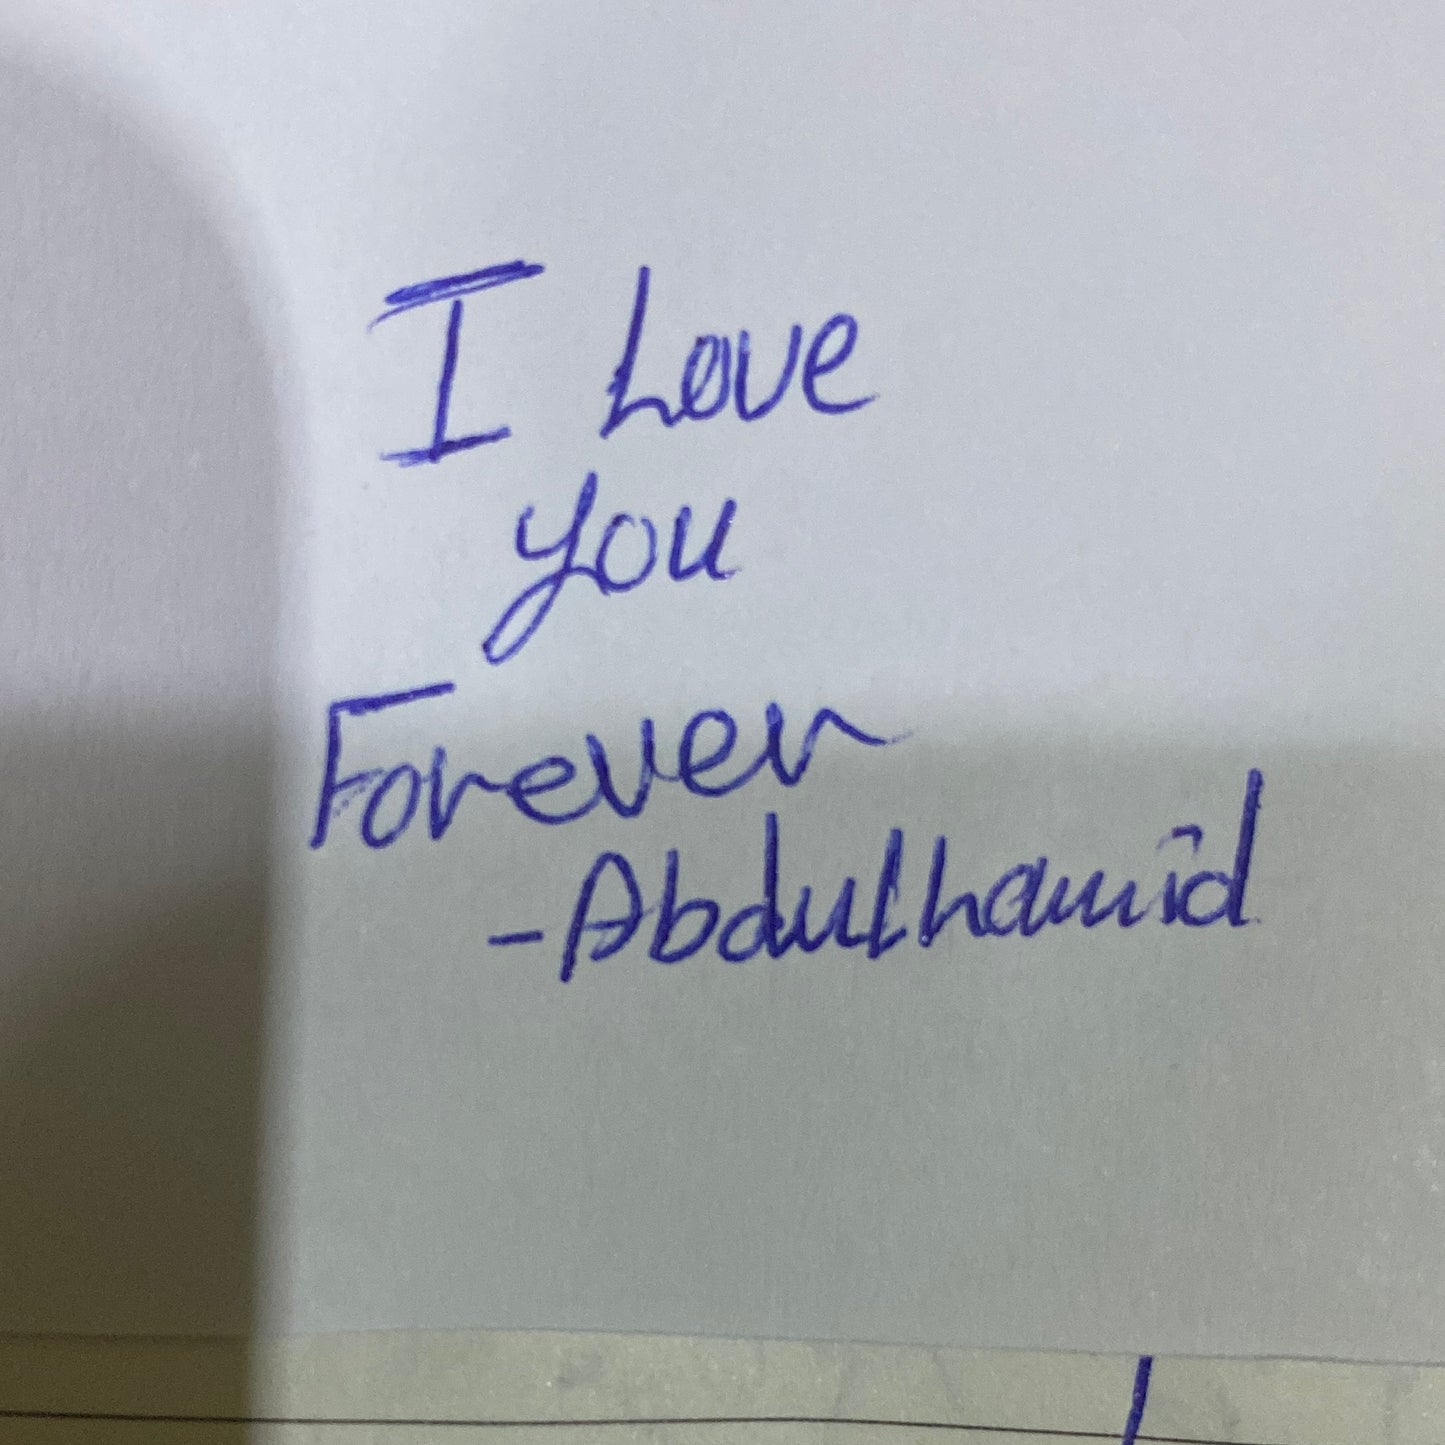 I Love
you
Forever
-Abdulhamîd